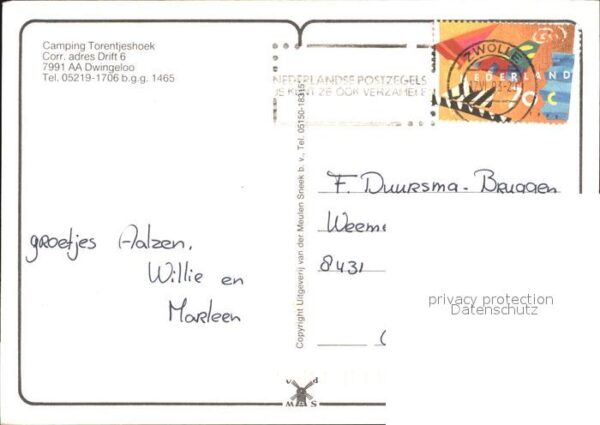 Camping Torentjeshoek
Corr. adres Drift 6
7991 AA Dwingeloo
Tel. 05219-1706 b.g.g. 1465
NEDERLANDSE POSTZEGELS
JE KUNT ZE OOK VERZAMELEN
ZWOLLE
NEDERLAND
70c
groetjes Aalzen,
Willie en
Marleen
Copyright Uitgeverij van der Meulen Sneek b.v., Tel. 05150-18315
F. Duursma-Bruggen
Weeme
8431
privacy protection
Datenschutz